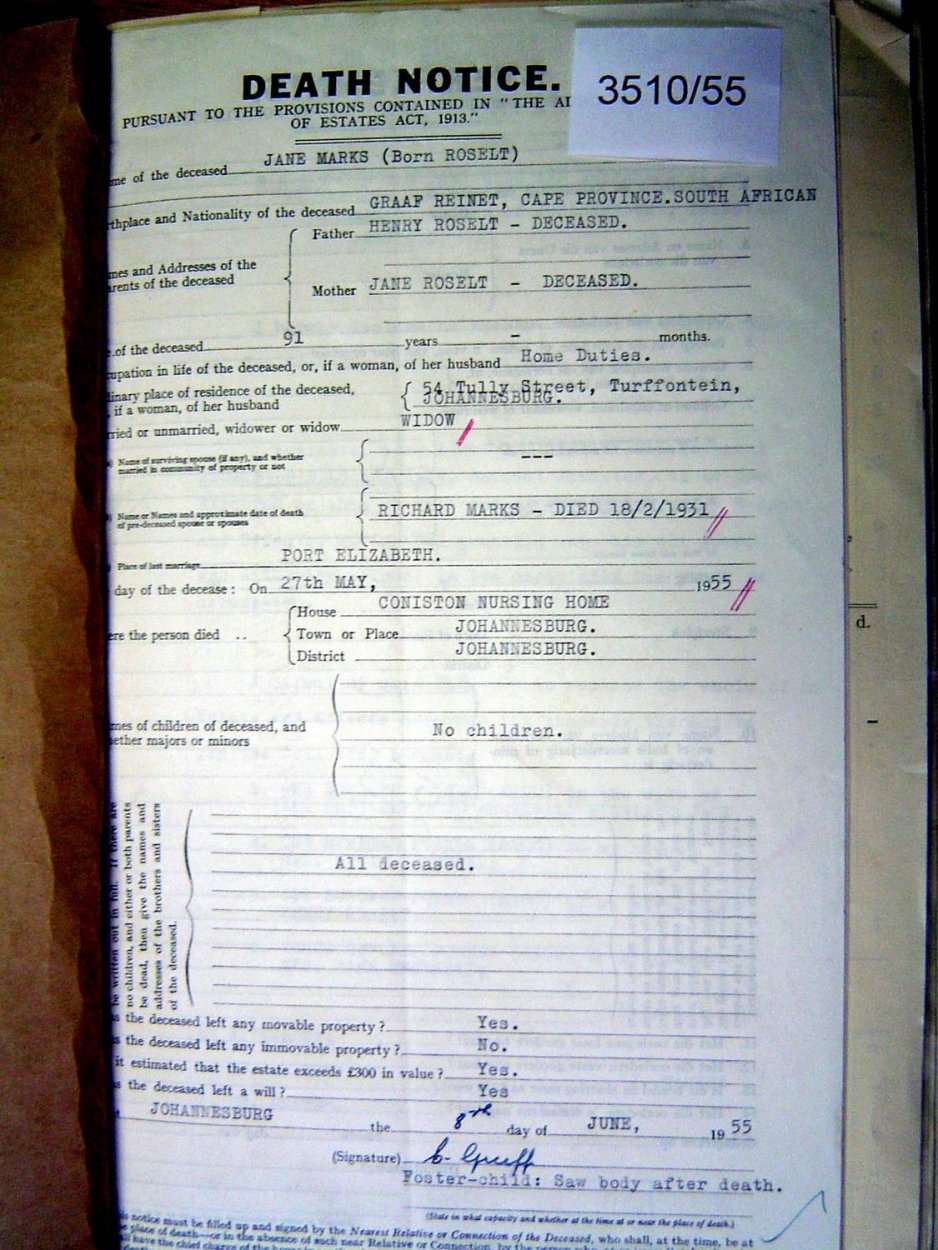 DEATH NOTICE.
3510/55
PURSUANT TO THE PROVISIONS CONTAINED IN "THE
OF ESTATES ACT, 1913."
me of the deceased JANE MARKS (Born ROSELT)
rthplace and Nationality of the deceased GRAAF REINET, CAPE PROVINCE.SOUTH AFRICAN
Father HENRY ROSELT - DECEASED.
mes and Addresses of the
rents of the deceased
Mother JANE ROSELT - DECEASED.
of the deceased 91 years - months.
upation in life of the deceased, or, if a woman, of her husband Home Duties.
inary place of residence of the deceased, 54 Tully Street, Turffontein,
if a woman, of her husband JOHANNESBURG.
rried or unmarried, widower or widow WIDOW
) Name of surviving spouse (if any), and whether
married in community of property or not ---
) Name or Names and approximate date of death
of pre-deceased spouse or spouses RICHARD MARKS - DIED 18/2/1931
) Place of last marriage PORT ELIZABETH.
day of the decease: On 27th MAY, 1955
House CONISTON NURSING HOME
ere the person died .. Town or Place JOHANNESBURG.
District JOHANNESBURG.
mes of children of deceased, and
ether majors or minors No children.
be written out in full. If there are
no children, and either or both parents
be dead, then give the names and
addresses of the brothers and sisters
of the deceased.
All deceased.
s the deceased left any movable property? Yes.
s the deceased left any immovable property? No.
it estimated that the estate exceeds £300 in value? Yes.
s the deceased left a will? Yes
JOHANNESBURG the 8th day of JUNE, 1955
(Signature)
Foster-child: Saw body after death.
(State in what capacity and whether at the time at or near the place of death.)
notice must be filled up and signed by the Nearest Relative or Connection of the Deceased, who shall, at the time, be at
place of death—or in the absence of such near Relative or Connection, by the person who
have the chief charge of the house
d.